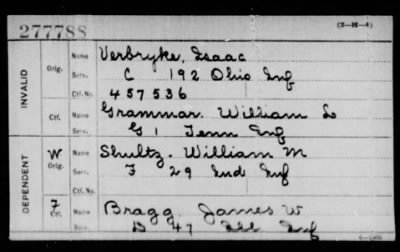 277788
(3-H-4)
INVALID
Orig.
Name Verbryke, Isaac
Serv. C 192 Ohio Inf
Ctf. No. 457536
Ctf.
Name Grammar. William L
Serv. G 1 Tenn Inf
DEPENDENT
W
Orig.
Name Shultz. William M
Serv. F 29 Ind Inf
Ctf. No.
7
Ctf.
Name Bragg, James W
Serv. D 47 Ill Inf